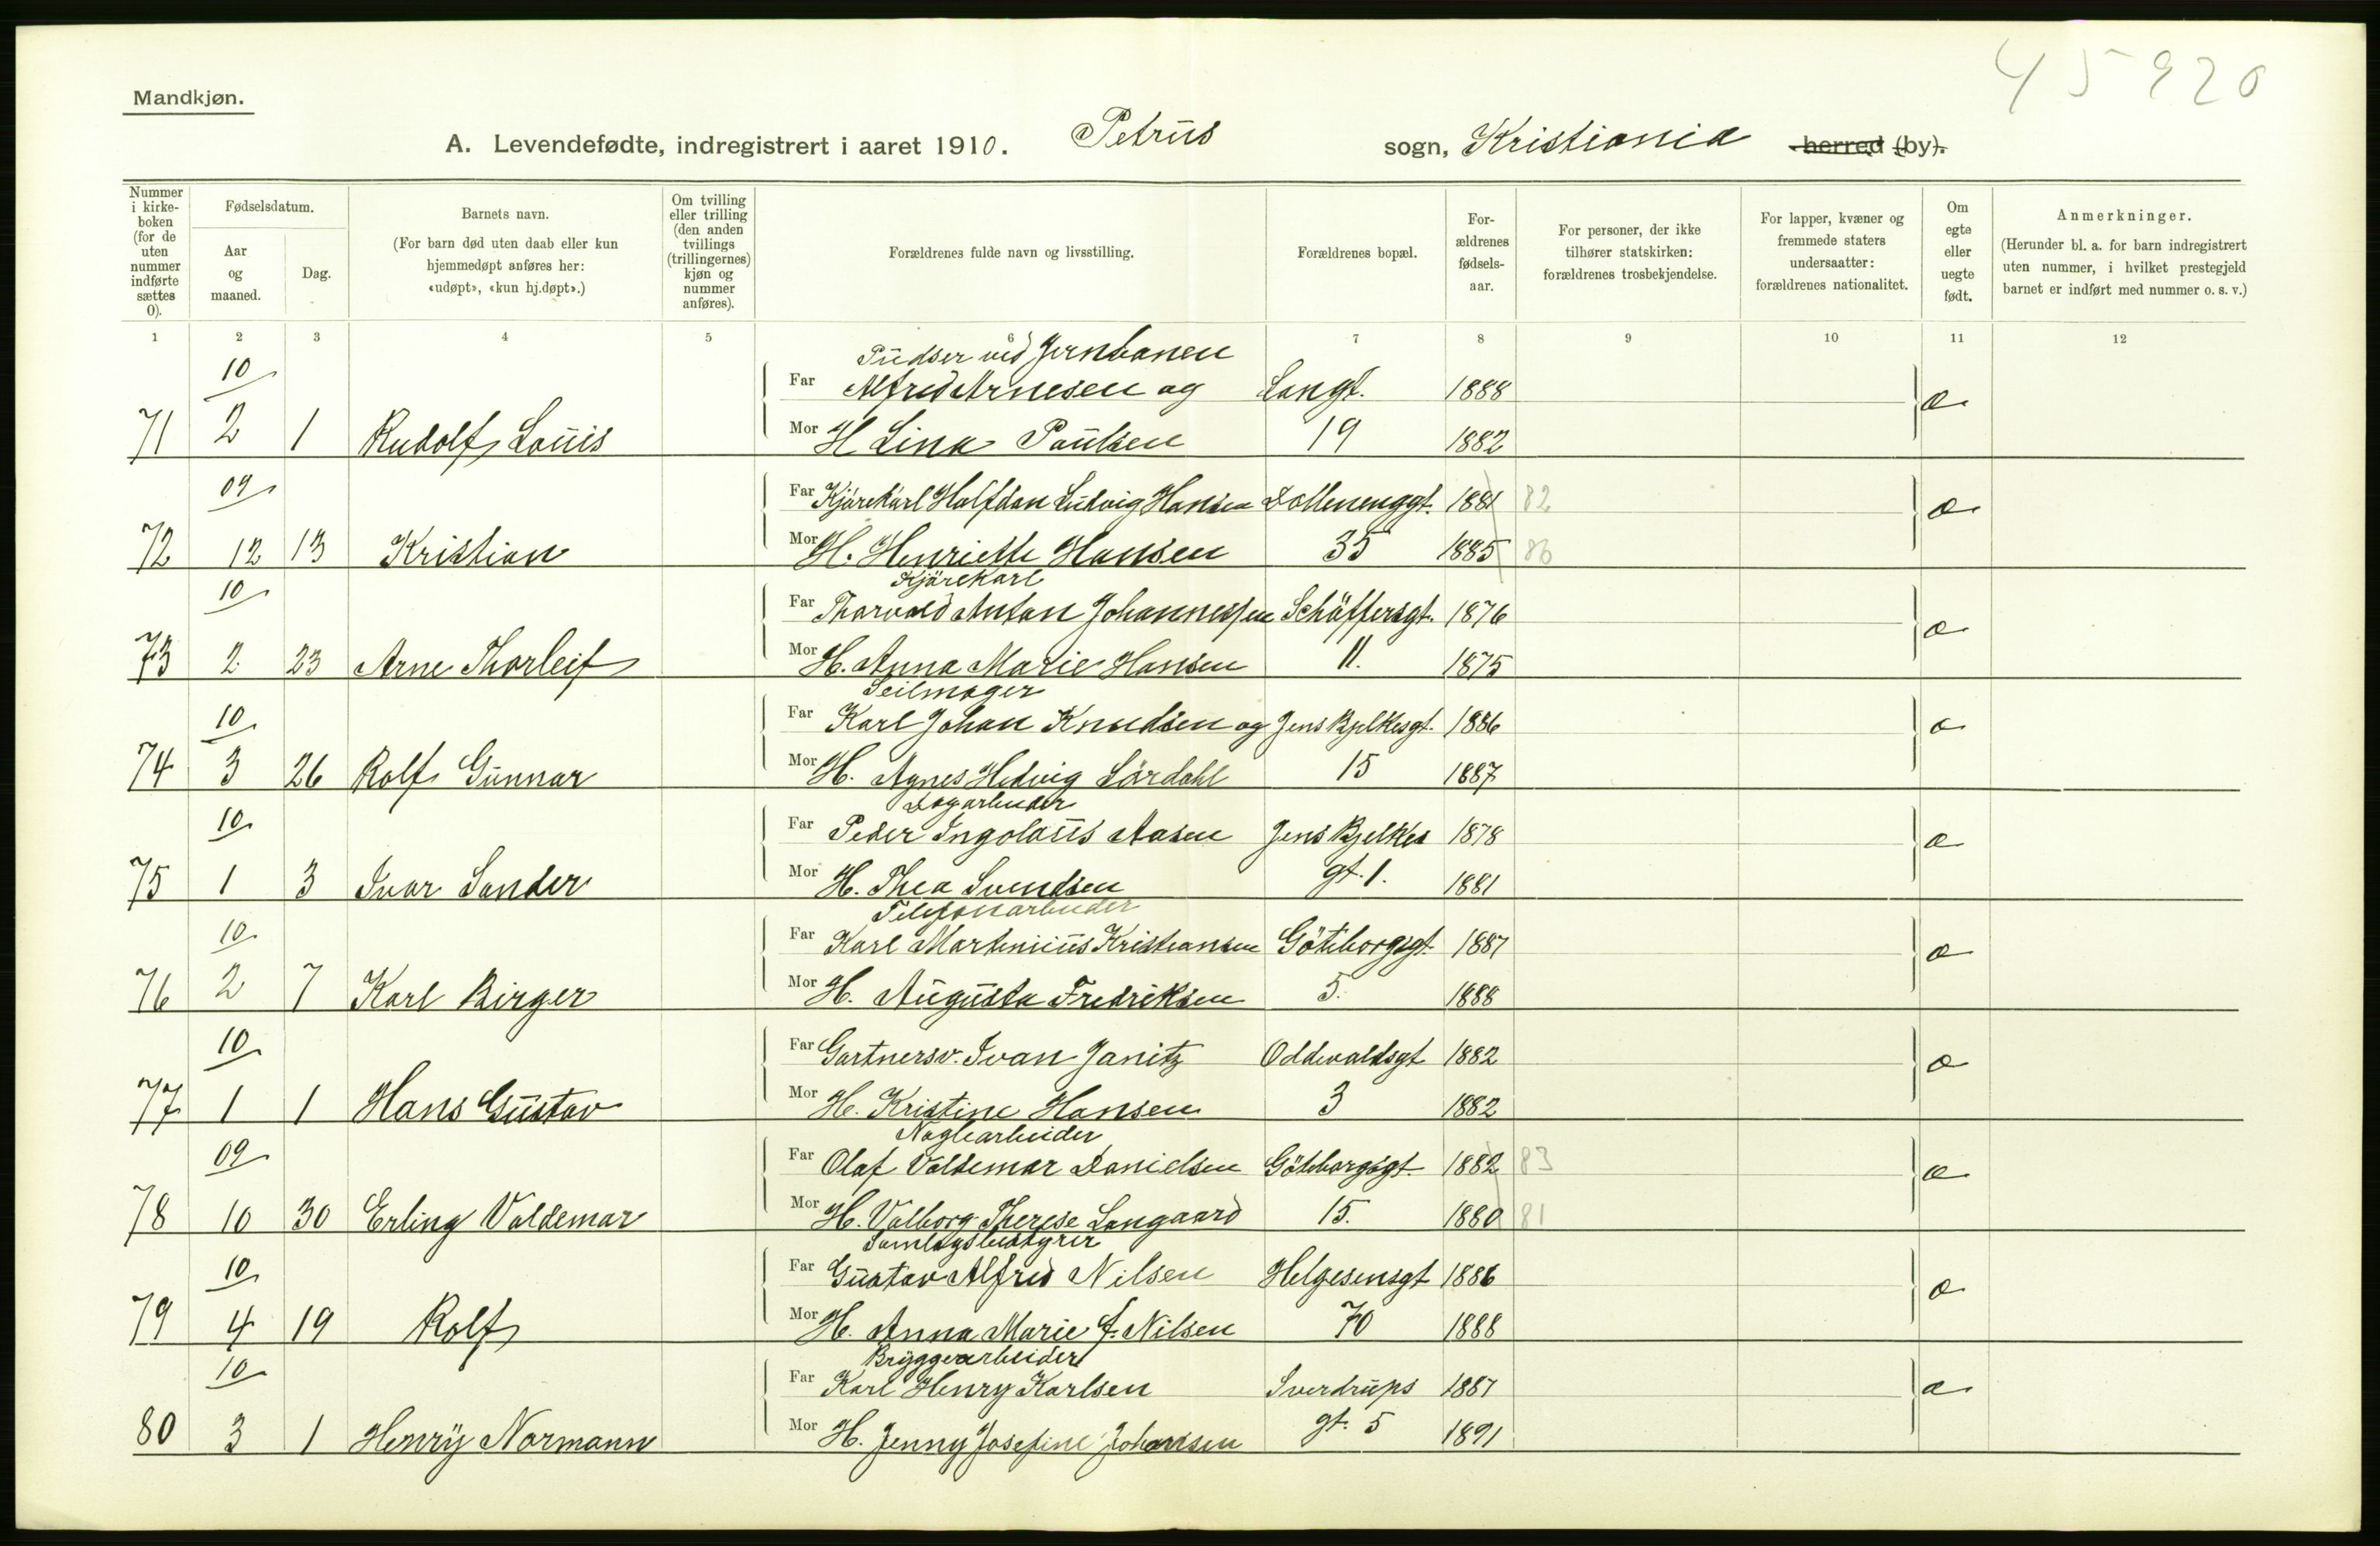 45920
Mandkjøn.
A. Levendefødte, indregistrert i aaret 1910. Petrus sogn, Kristiania herred (by).
Nummer i kirke-boken (for de uten nummer indførte sættes 0).
Fødselsdatum.
Aar og maaned.
Dag.
Barnets navn.
(For barn død uten daab eller kun hjemmedøpt anføres her: «udøpt», «kun hj.døpt».)
Om tvilling eller trilling (den anden tvillings (trillingernes) kjøn og nummer anføres).
Forældrenes fulde navn og livsstilling.
Forældrenes bopæl.
For-ældrenes fødsels-aar.
For personer, der ikke tilhører statskirken: forældrenes trosbekjendelse.
For lapper, kvæner og fremmede staters undersaatter: forældrenes nationalitet.
Om egte eller uegte født.
Anmerkninger.
(Herunder bl. a. for barn indregistrert uten nummer, i hvilket prestegjeld barnet er indført med nummer o. s. v.)
1 2 3 4 5 6 7 8 9 10 11 12
Pudser ved Jernbanen
10 Far Alfred Arnesen og Langt. 1888 æ
71 2 1 Rudolf Louis Mor H Lina Paulsen 19 1882
09 Far Kjørekarl Halfdan Ludvig Hansen Dælenenggt. 1881 82 æ
72 12 13 Kristian Mor H. Henriette Hansen 35 1885 86
Kjørekarl
10 Far Thorvald Anton Johannessen Schäffersgt. 1876 æ
73 2 23 Arne Thorleif Mor H. Anna Marie Hansen 11. 1875
Seilmager
10 Far Karl Johan Knudsen og Jens Bjelkesgt. 1886 æ
74 3 26 Rolf Gunnar Mor H. Agnes Hedvig Lördahl 15 1887
Dagarbeider
10 Far Peder Ingolaus Aasen Jens Bjelkes 1878 æ
75 1 3 Ivar Sander Mor H. Thea Svendsen gt. 1. 1881
Telefonarbeider
10 Far Karl Martinius Kristiansen Göteborgsgt. 1887 æ
76 2 7 Karl Birger Mor H. Augusta Fredriksen 5. 1888
10 Far Gartnersv. Ivan Janitz Oddevaldsgt 1882 æ
77 1 1 Hans Gustav Mor H. Kristine Hansen 3 1882
Naglearbeider
09 Far Olaf Valdemar Danielsen Göteborgsgt. 1882 83 æ
78 10 30 Erling Valdemar Mor H. Valborg Therese Langaard 15. 1880 81
Samlagsbestyrer
10 Far Gustav Alfred Nilsen Helgesensgt 1886 æ
79 4 19 Rolf Mor H. Anna Marie f. Nilsen 70 1888
Bryggearbeider
10 Far Karl Henry Karlsen Sverdrups 1887 æ
80 3 1 Henry Normann Mor H. Jenny Josefine Johansen gt. 5 1891